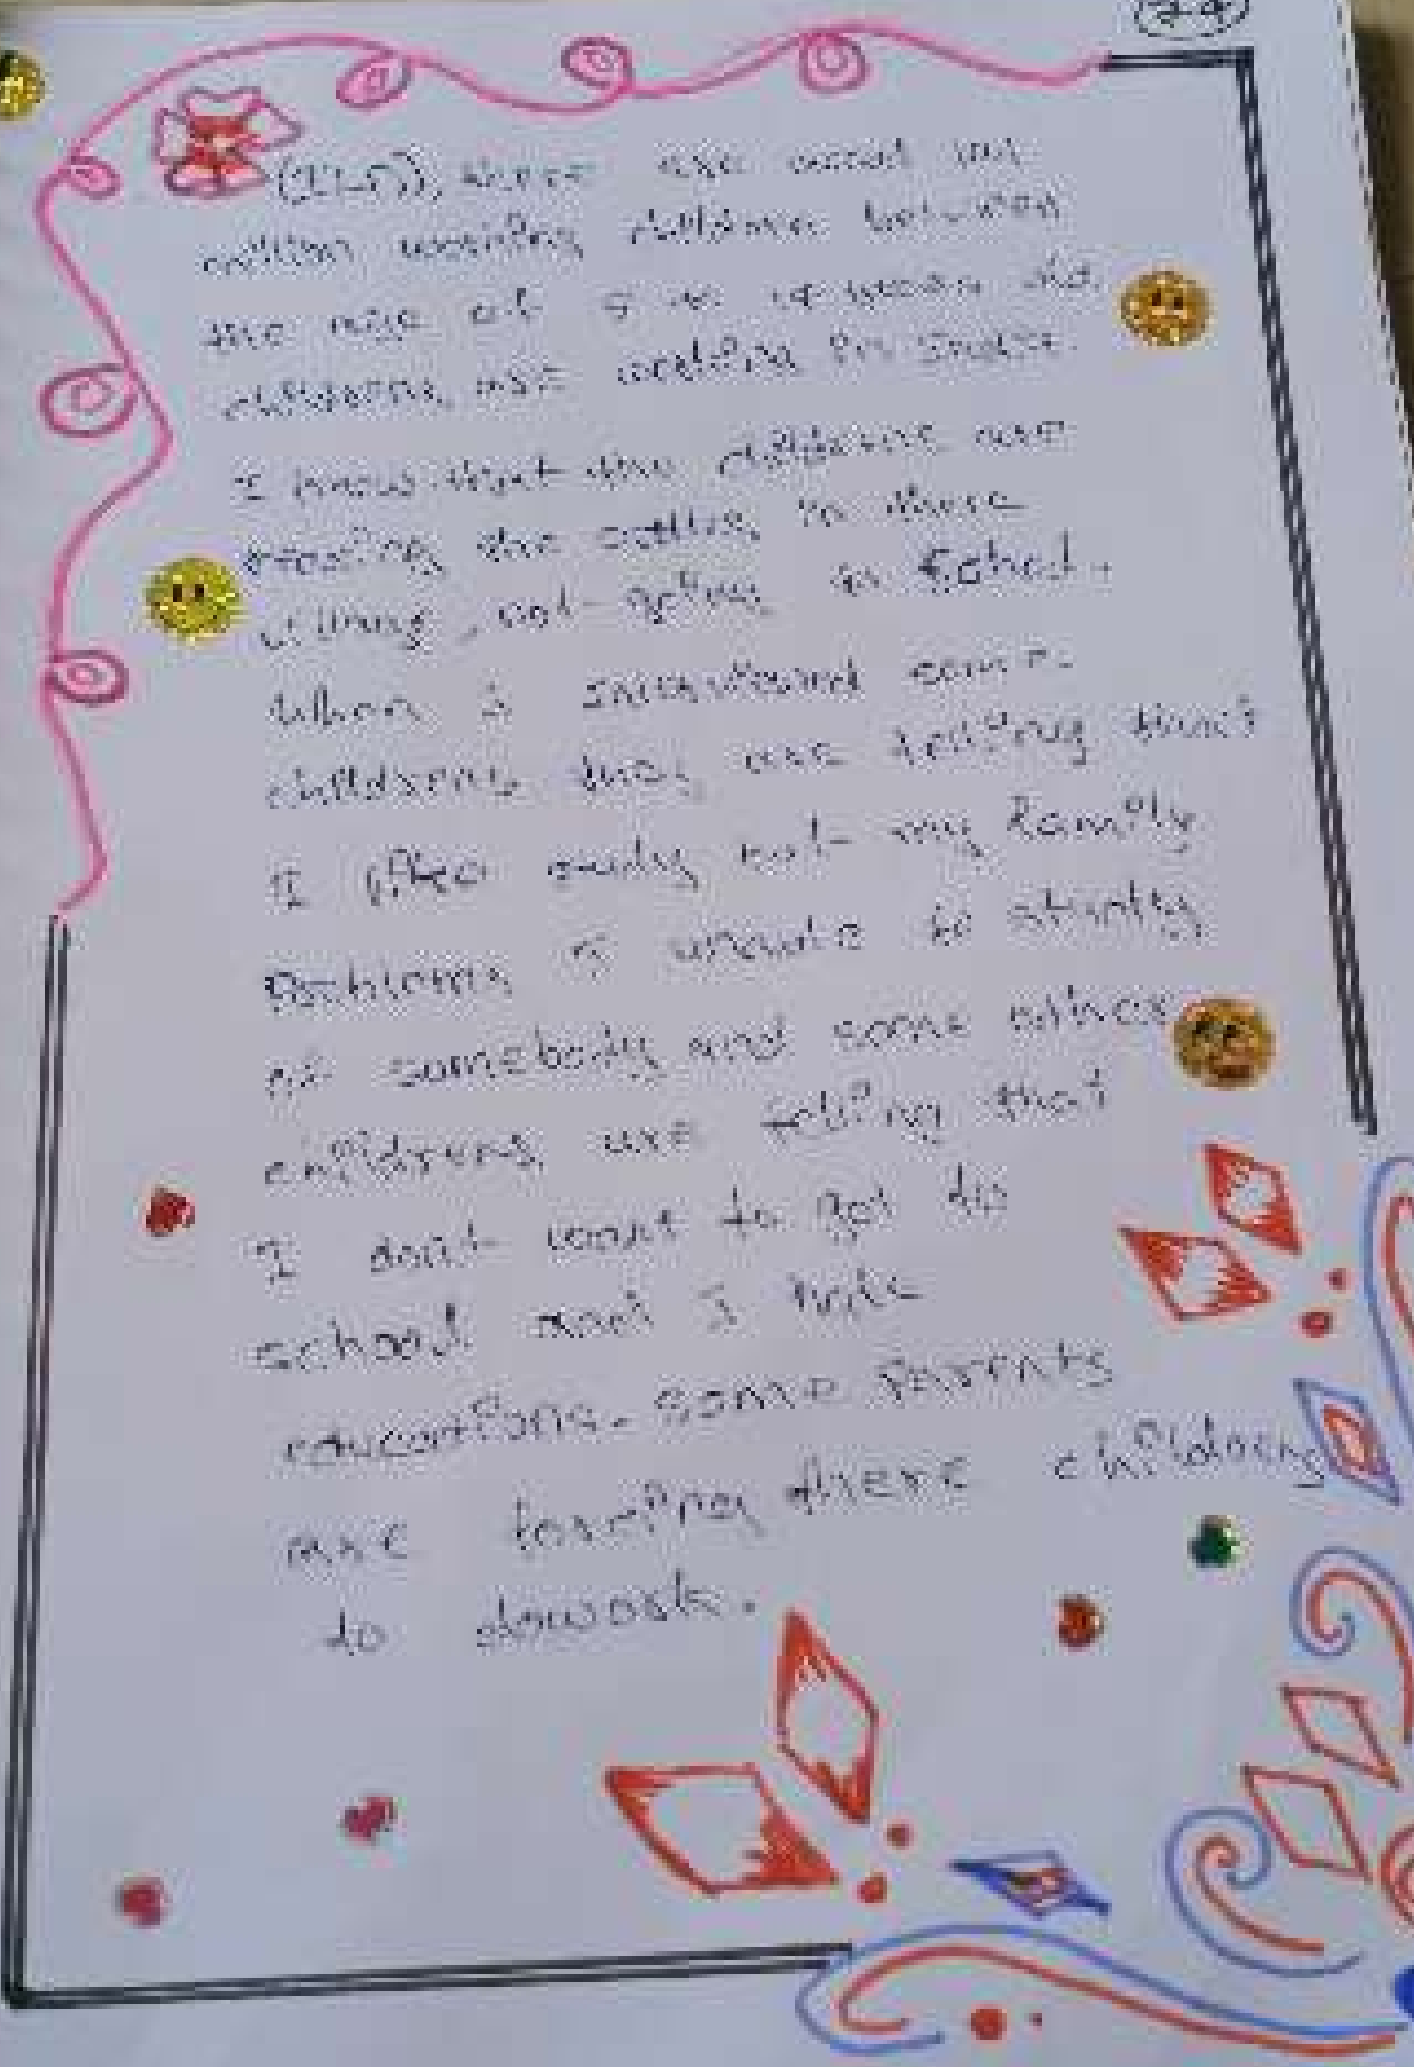 (ILO), there are
million working children between
the age of 5 to 14 years
childrens are working in
I know that the children are
the cattles in there
village, not going to School.
When I some
childrens they are telling that
I like study but my family
Problems I unable to study
of somebody and some other
childrens are telling that
I don't want to go to
school and I hate
educations. Some Parents
are forcing there childrens
to dowork.